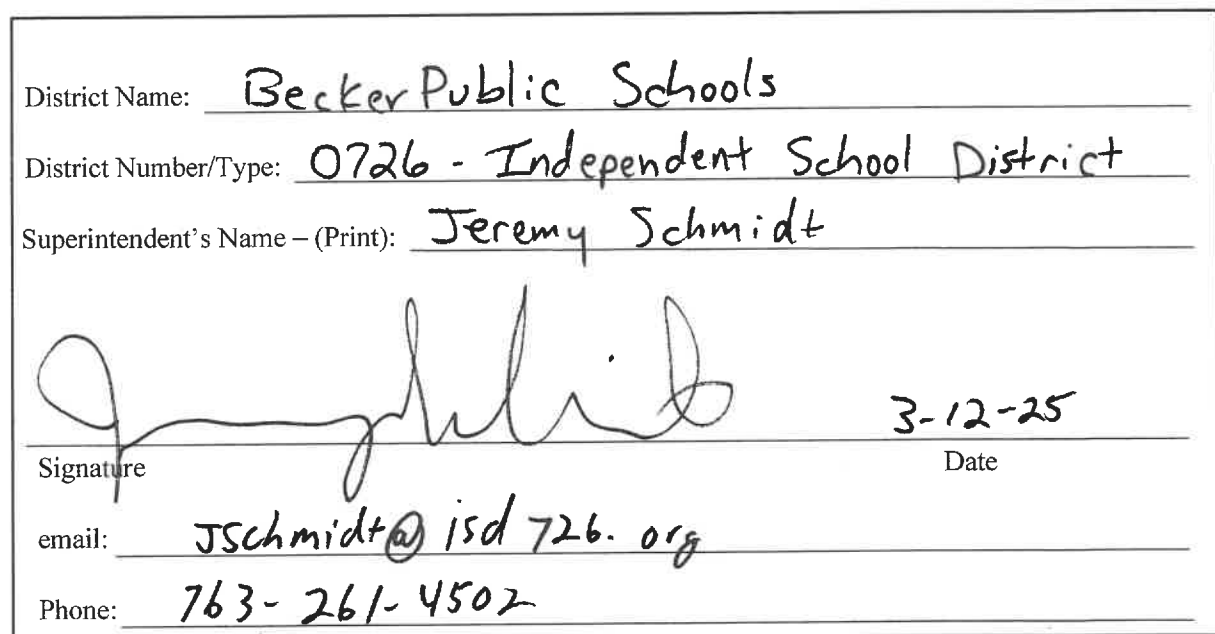 District Name: Becker Public Schools
District Number/Type: 0726 - Independent School District
Superintendent's Name – (Print): Jeremy Schmidt
3-12-25
Signature Date
email: JSchmidt@isd726.org
Phone: 763-261-4502